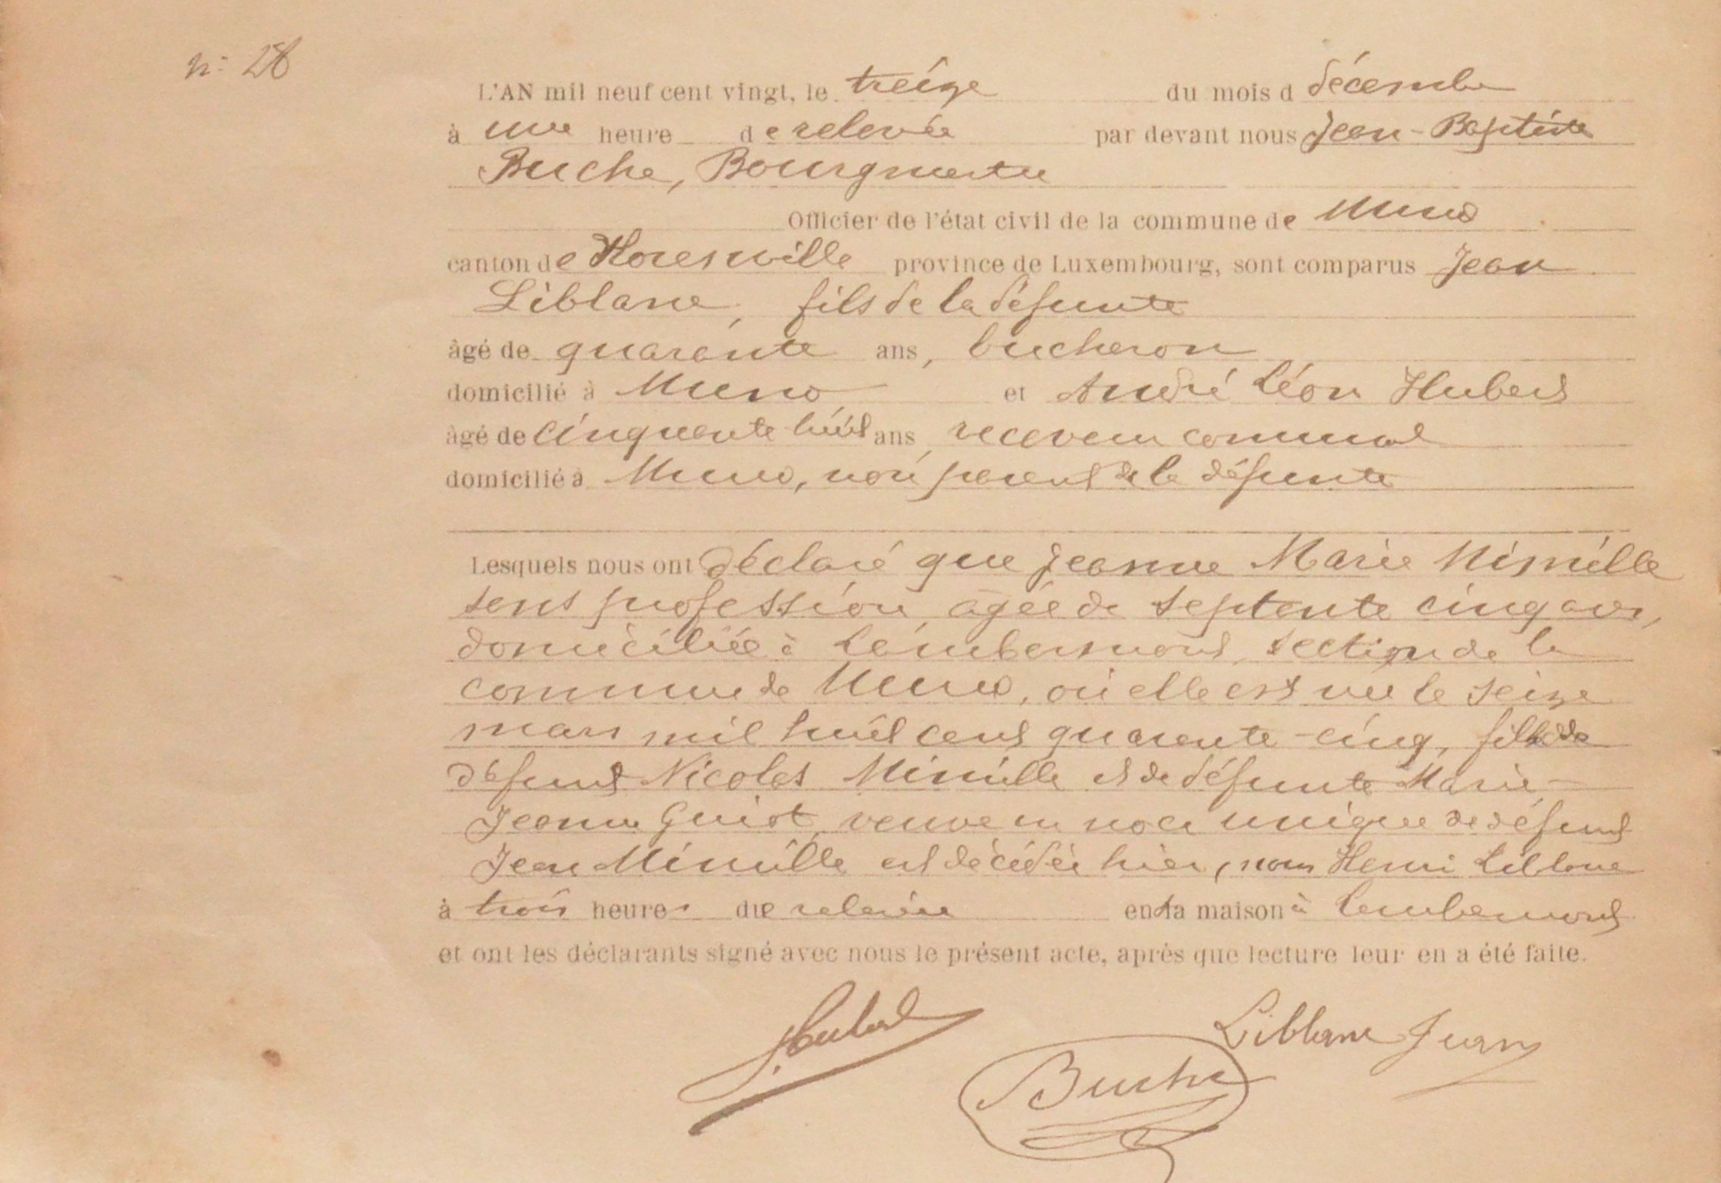 n° 28
L'AN mil neuf cent vingt, le treize du mois d décembre
à une heure de relevée par devant nous Jean-Baptiste
Buche, Bourgmestre
Officier de l'état civil de la commune de Muno
canton de Florenville province de Luxembourg, sont comparus Jean
Liblanc, fils de la défunte
âgé de quarante ans, bucheron
domicilié à Muno et André Léon Hubert
âgé de cinquante-huit ans, receveur communal
domicilié à Muno, non parent de la défunte
Lesquels nous ont déclaré que Jeanne Marie
sans profession, âgée de septente cinq ans,
domiciliée à Lambermont, section de la
commune de Muno, où elle est née le seize
mars mil huit cent quarante-cinq, fille de
défunt Nicolas et de défunte Marie-
Jeanne Guiot, veuve en noce unique de défunt
Jean est décédée hier, Henri Liblanc
à trois heures de relevée en sa maison à Lambermont
et ont les déclarants signé avec nous le présent acte, après que lecture leur en a été faite.
Hubert
Liblanc Jean
Buche